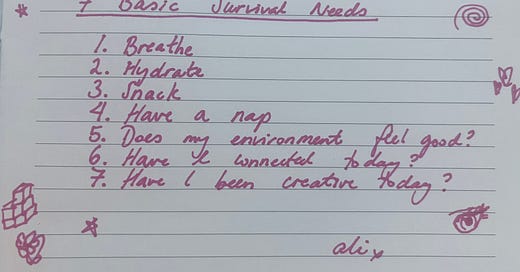 7 Basic Survival Needs
1. Breathe
2. Hydrate
3. Snack
4. Have a nap
5. Does my environment feel good?
6. Have I connected today?
7. Have I been creative today?
alix